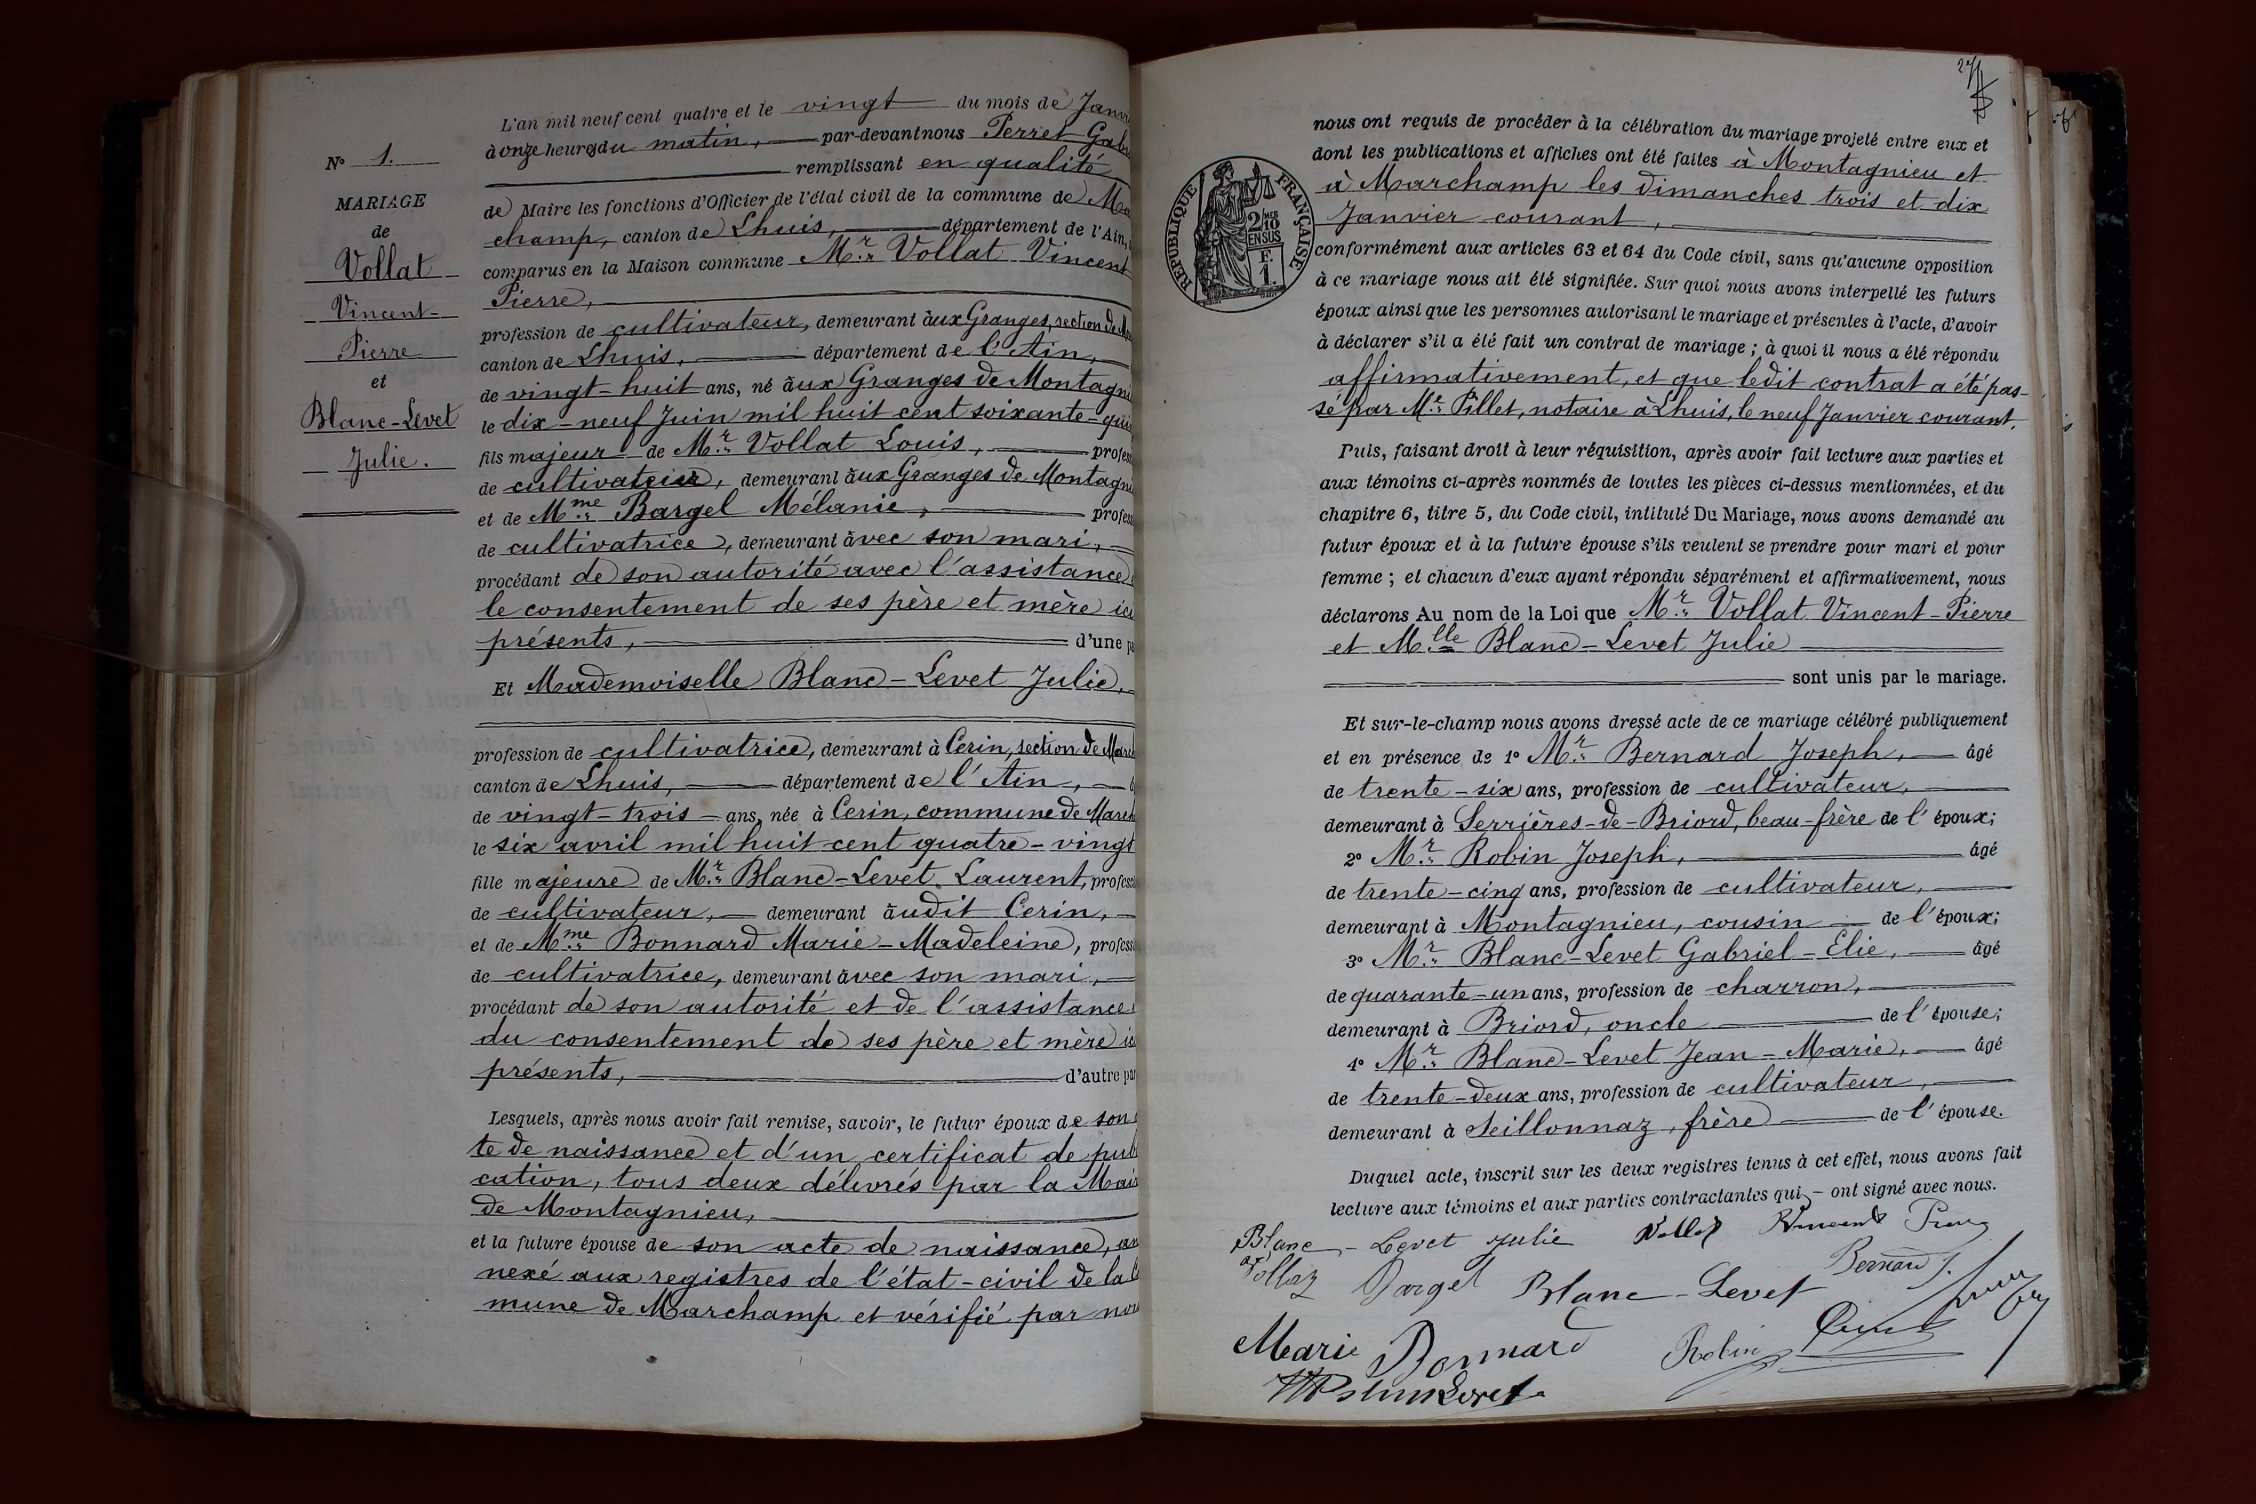 N° 1.
MARIAGE
de
Vollat
Vincent-
Pierre
et
Blanc-Levet
Julie.
L'an mil neuf cent quatre et le vingt du mois de Janvi
à onze heures du matin, par-devant nous Perret Gab
remplissant en qualité
de Maire les fonctions d'Officier de l'état civil de la commune de Ma
champ, canton de Lhuis, département de l'Ain,
comparus en la Maison commune Mr. Vollat Vincent
Pierre,
profession de cultivateur, demeurant aux Granges, section de Mon
canton de Lhuis, département de l'Ain,
de vingt-huit ans, né aux Granges de Montagni
le dix-neuf Juin mil huit cent soixante-qui
fils majeur de Mr. Vollat Louis, profess
de cultivateur, demeurant aux Granges de Montagni
et de Mme Bargel Mélanie, profess
de cultivatrice, demeurant avec son mari,
procédant de son autorité avec l'assistance
le consentement de ses père et mère ici
présents, d'une pa
Et Mademoiselle Blanc-Levet Julie,
profession de cultivatrice, demeurant à Cerin, section de March
canton de Lhuis, département de l'Ain,
de vingt-trois ans, née à Cerin, commune de March
le six avril mil huit cent quatre-vingt
fille majeure de Mr. Blanc-Levet Laurent, professi
de cultivateur, demeurant audit Cerin,
et de Mme Bonnard Marie-Madeleine, profess
de cultivatrice, demeurant avec son mari,
procédant de son autorité et de l'assistance
du consentement de ses père et mère ic
présents, d'autre par
Lesquels, après nous avoir fait remise, savoir, le futur époux de son
te de naissance et d'un certificat de publi
cation, tous deux délivrés par la Mair
de Montagnieu,
et la future épouse de son acte de naissance, an
nexé aux registres de l'état-civil de la
mune de Marchamp et vérifié par nou
27
nous ont requis de procéder à la célébration du mariage projeté entre eux et
dont les publications et affiches ont été faites à Montagnieu et
à Marchamp les dimanches trois et dix
Janvier courant,
REPUBLIQUE FRANÇAISE
2/10
EN SUS
F.
1.
conformément aux articles 63 et 64 du Code civil, sans qu'aucune opposition
à ce mariage nous ait été signifiée. Sur quoi nous avons interpellé les futurs
époux ainsi que les personnes autorisant le mariage et présentes à l'acte, d'avoir
à déclarer s'il a été fait un contrat de mariage ; à quoi il nous a été répondu
affirmativement, et que ledit contrat a été pas-
sé par Me Pillet, notaire à Lhuis, le neuf Janvier courant.
Puis, faisant droit à leur réquisition, après avoir fait lecture aux parties et
aux témoins ci-après nommés de toutes les pièces ci-dessus mentionnées, et du
chapitre 6, titre 5, du Code civil, intitulé Du Mariage, nous avons demandé au
futur époux et à la future épouse s'ils veulent se prendre pour mari et pour
femme ; et chacun d'eux ayant répondu séparément et affirmativement, nous
déclarons Au nom de la Loi que Mr. Vollat Vincent-Pierre
et Mlle Blanc-Levet Julie
sont unis par le mariage.
Et sur-le-champ nous avons dressé acte de ce mariage célébré publiquement
et en présence de 1° Mr. Bernard Joseph, âgé
de trente-six ans, profession de cultivateur,
demeurant à Serrières-de-Briord, beau-frère de l'époux;
2° Mr. Robin Joseph, âgé
de trente-cinq ans, profession de cultivateur,
demeurant à Montagnieu, cousin de l'époux;
3° Mr. Blanc-Levet Gabriel-Elie, âgé
de quarante-un ans, profession de charron,
demeurant à Briord, oncle de l'épouse;
4° Mr. Blanc-Levet Jean-Marie, âgé
de trente-deux ans, profession de cultivateur,
demeurant à Seillonnaz, frère de l'épouse.
Duquel acte, inscrit sur les deux registres tenus à cet effet, nous avons fait
lecture aux témoins et aux parties contractantes qui ont signé avec nous.
Blanc-Levet Julie Vollat Vincent
Bargel Blanc-Levet Bernard J.
Marie Bonnard Robin